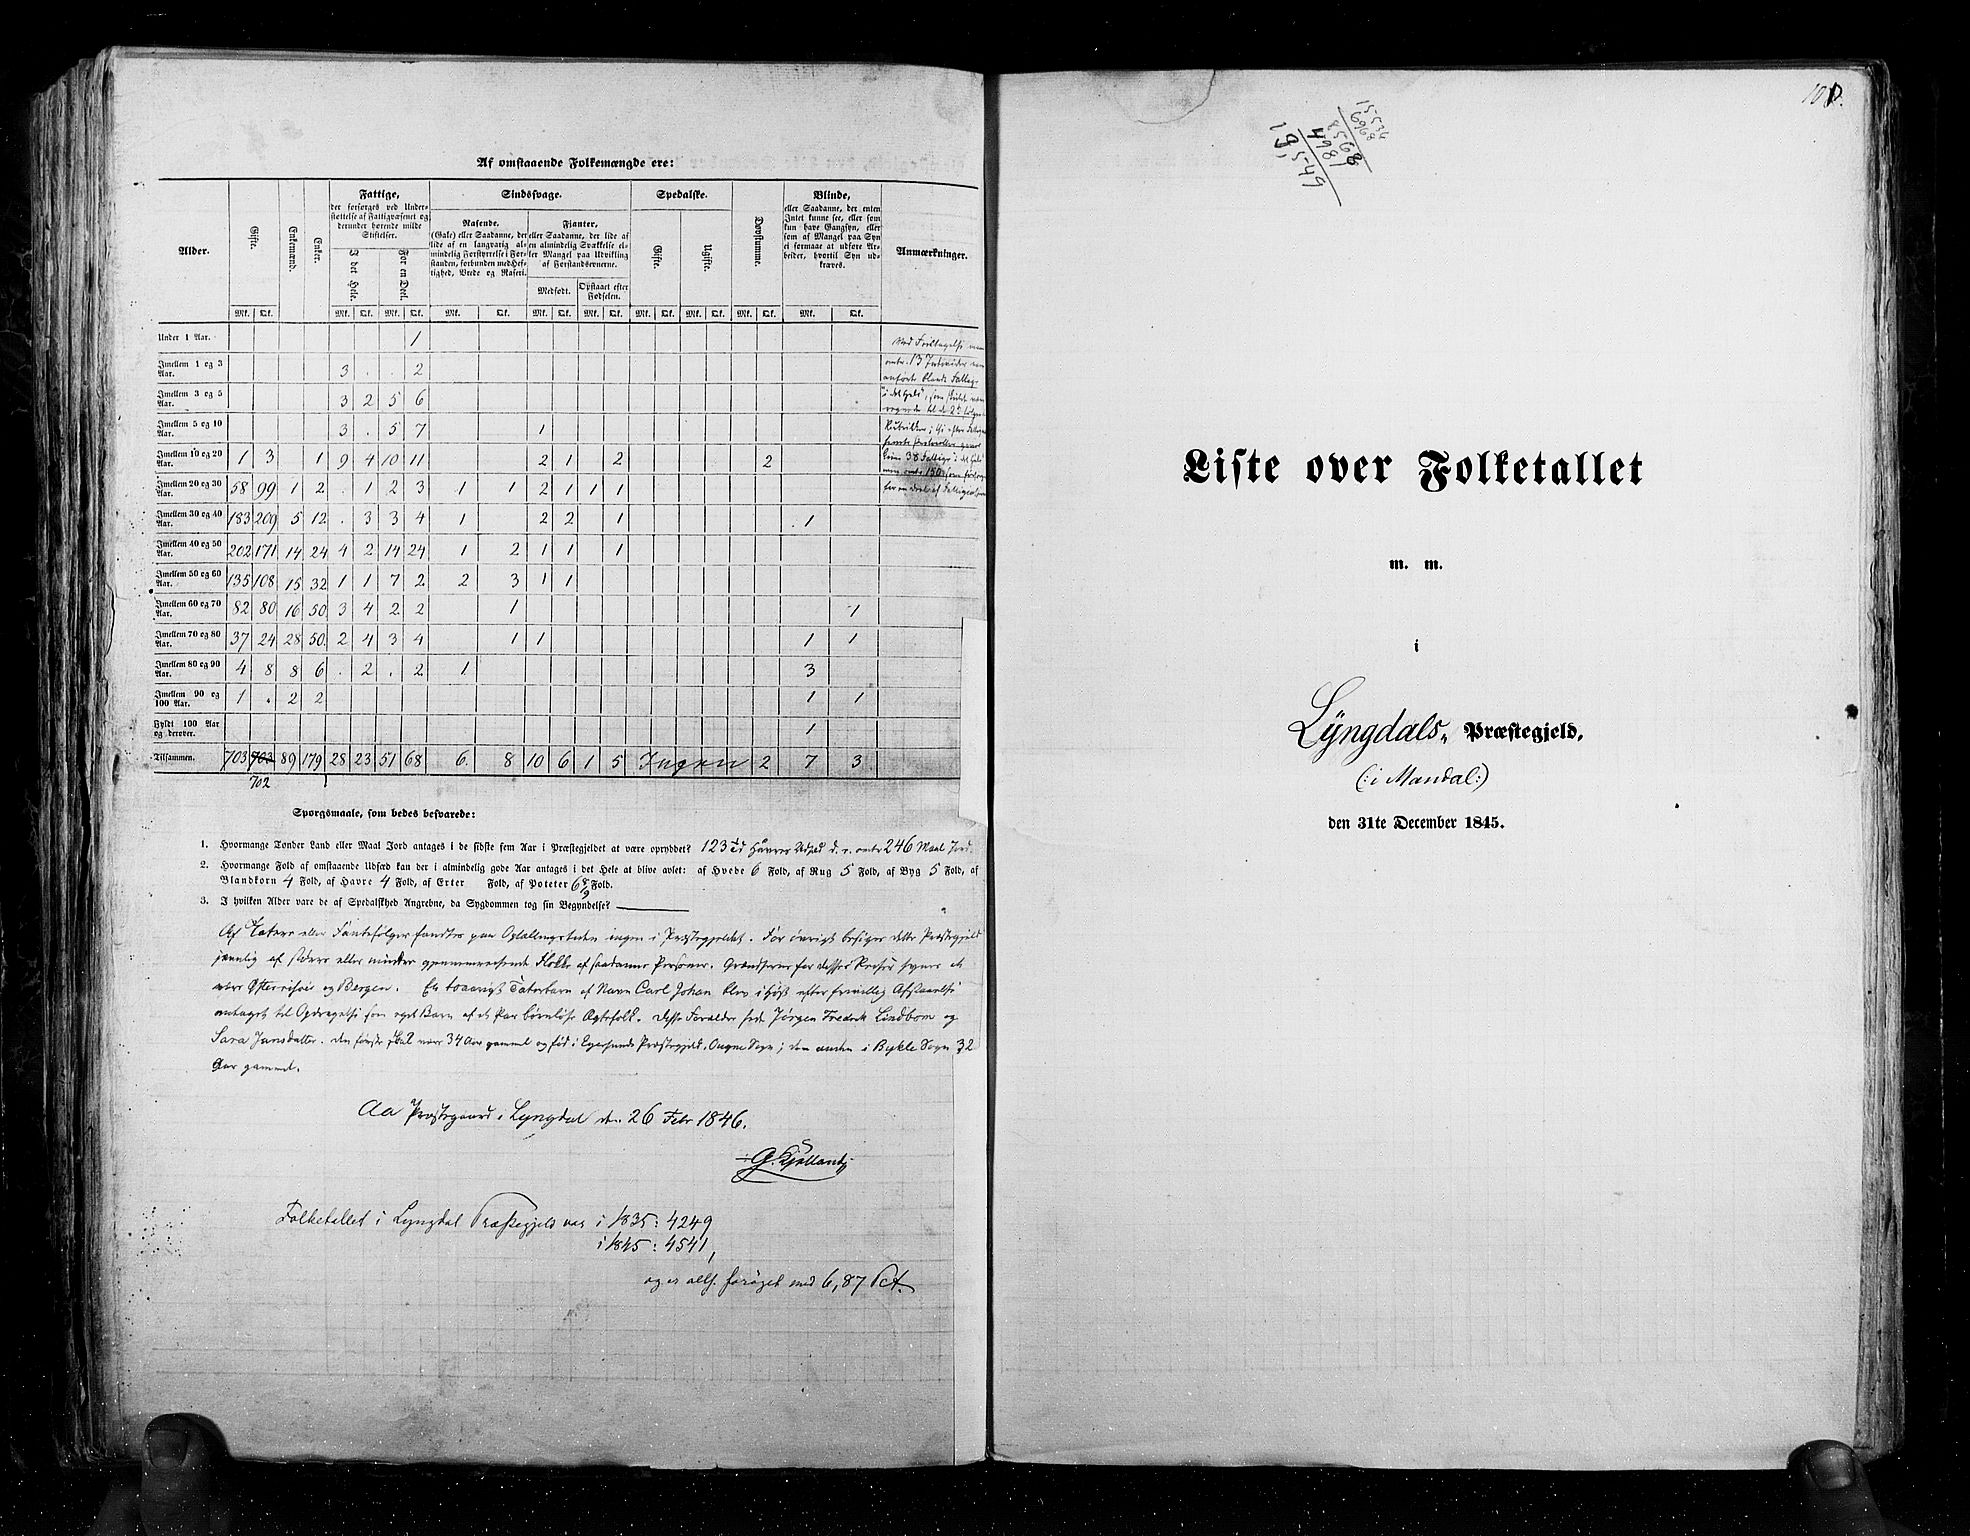 Af omstaaende Folkemængde ere:
Alder.
Gifte.
Enkemænd.
Enker.
Fattige,
der forsørges ved Under-
støttelse af Fattigvæsenet og
derunder hørende milde
Stiftelser.
I det Hele.
For en Deel.
Sindssvage.
Rasende.
(Gale) eller Saadanne, der
lide af en langvarig al-
mindelig Forstyrrelse i For-
standen, forbunden med Hef-
tighed, Vrede og Raseri.
Fjanter,
eller Saadanne, der lide af
en almindelig Svækkelse el-
ler Mangel paa Udvikling
af Forstandsevnerne.
Medfødt.
Opstaaet efter
Fødselen.
Spedalske.
Gifte.
Ugifte.
Døvstumme.
Blinde,
eller Saadanne, der enten
Intet kunne see, eller som
kun have Gangsyn, eller
som af Mangel paa Syn
ei formaae at udføre Ar-
beider, hvortil Syn ud-
kræves.
Anmærkninger.
Mk. Qk. Mk. Qk. Mk. Qk. Mk. Qk. Mk. Qk. Mk. Qk. Mk. Qk. Mk. Qk. Mk. Qk. Mk. Qk.
Under 1 Aar. 1
Imellem 1 og 3 Aar. 3 . . 2
Imellem 3 og 5 Aar. 3 2 5 6
Imellem 5 og 10 Aar. 3 . 5 7 1
Imellem 10 og 20 Aar. 1 3 1 9 4 10 11 2 1 2 2
Imellem 20 og 30 Aar. 58 99 1 2 . 1 2 3 1 1 2 1 1 1
Imellem 30 og 40 Aar. 183 209 5 12 . 3 3 4 1 2 2 1 1
Imellem 40 og 50 Aar. 202 171 14 24 4 2 14 24 1 2 1 1 1
Imellem 50 og 60 Aar. 135 108 15 32 1 1 7 2 2 3 1 1
Imellem 60 og 70 Aar. 82 80 16 50 3 4 2 2 1 1
Imellem 70 og 80 Aar. 37 24 28 50 2 4 3 4 1 1 1 1
Imellem 80 og 90 Aar. 4 8 8 6 . 2 . 2 1 3
Imellem 90 og 100 Aar. 1 . 2 2 1 1
Fyldt 100 Aar og derover. 1
Tilsammen. 703 703 89 179 28 23 51 68 6 8 10 6 1 5 Ingen 2 7 3
702
Spørgsmaale, som bedes besvarede:
1. Hvormange Tønder Land eller Maal Jord antages i de sidste fem Aar i Præstegjeldet at være opryddet? 123 246 Maal Jord.
2. Hvormange Fold af omstaaende Udsæd kan der i almindelig gode Aar antages i det Hele at blive avlet: af Hvede 6 Fold, af Rug 5 Fold, af Byg 5 Fold, af
Blandkorn 4 Fold, af Havre 4 Fold, af Erter Fold, af Poteter 6 Fold.
3. I hvilken Alder vare de af Spedalskhed Angrebne, da Sygdommen tog sin Begyndelse?
Af Tatere eller Fantefølger fandtes paa Optællingstiden ingen i Præstegjeldet. For øvrigt besøges dette Præstegjeld
jævnlig af større eller mindre gjennemreisende Flokke af saadanne Personer. Grændserne for deres Reiser synes at
være og Bergen. Et Taterbarn af Navn Carl Johan blev i Høst efter frivillig Afstaaelse
antaget til Opdragelse som eget Barn af et Par barnløse Ægtefolk. Dette Forældre Jørgen Fredrik Lindbom og
Sara Jansdatter. den første skal være 34 Aar gammel og fød i Egersunds Præstegjeld, Ougne Sogn; den anden i Bykle Sogn 32
Aar gammel.
Aa Præstegaard i Lyngdal den 26 Febr 1846.
Folketallet i Lyngdal Præstegjeld var i 1835: 4249
i 1845: 4541,
og er alts. forøget med 6,87 Pct.
100.
15534
6968
8568
4981
19,549
Liste over Folketallet
m. m.
i
Lyngdals Præstegjeld,
(: i Mandal :)
den 31te December 1845.